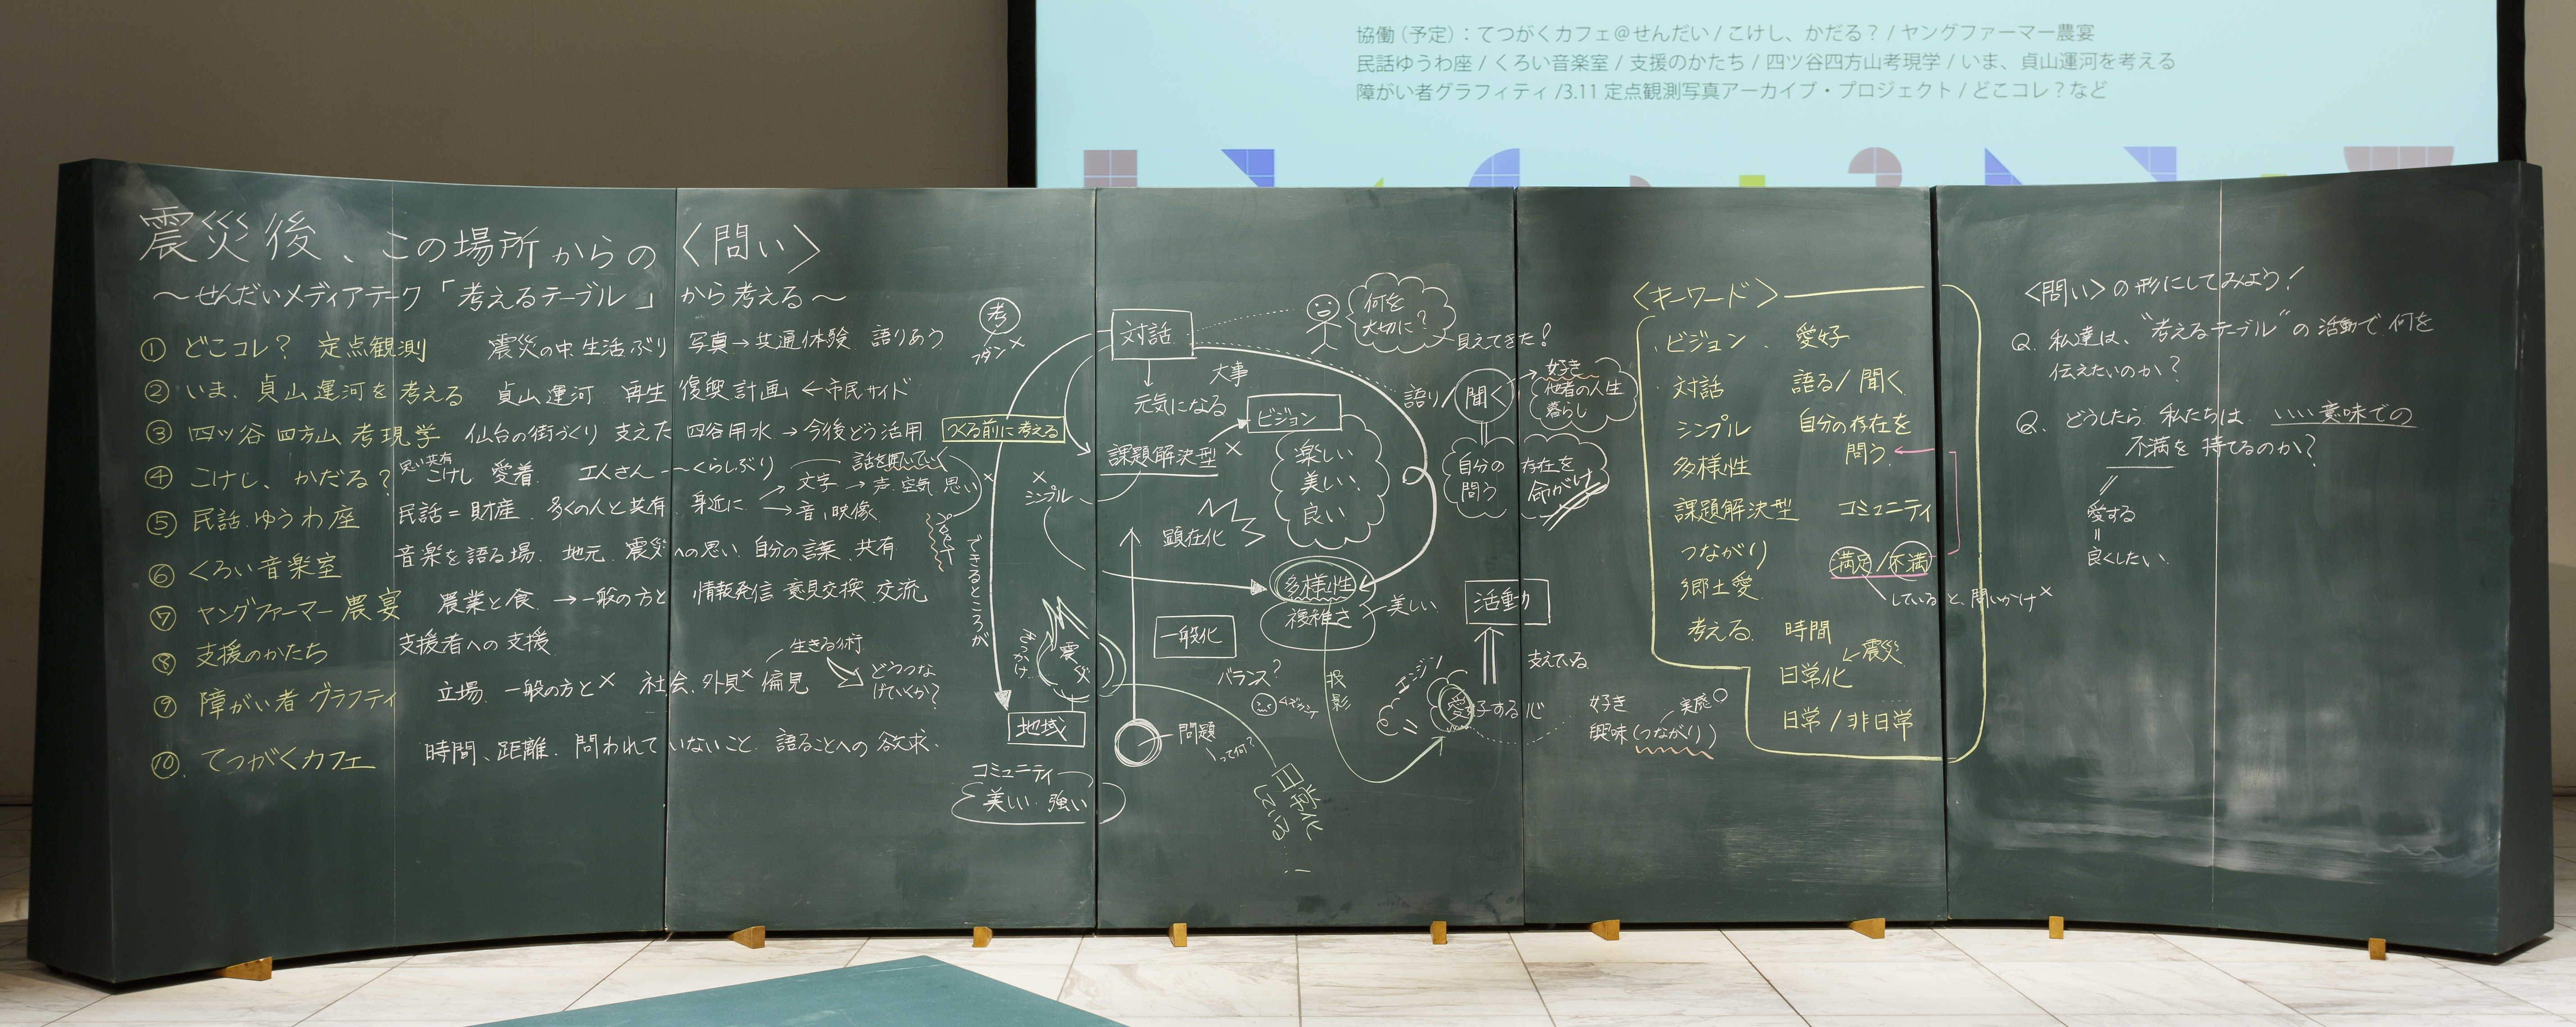 協働（予定）：てつがくカフェ＠せんだい / こけし、かだる？ / ヤングファーマー農宴
民話ゆうわ座 / くろい音楽室 / 支援のかたち / 四ツ谷四方山考現学 / いま、貞山運河を考える
障がい者グラフィティ /3.11 定点観測写真アーカイブ・プロジェクト / どこコレ？など
震災後、この場所からの〈問い〉
〜せんだいメディアテーク「考えるテーブル」から考える〜
① どこコレ？ 定点観測 震災の中 生活ぶり 写真→共通体験 語りあう
② いま、貞山運河を考える 貞山運河 再生 復興計画 ←市民サイド
③ 四ツ谷四方山考現学 仙台の街づくり 支えた 四谷用水→今後どう活用
④ こけし、かだる？ 思い共有 こけし 愛着 工人さん くらしぶり
⑤ 民話ゆうわ座 民話=財産 多くの人と共有 身近に
話を聞いていく
文字→声 空気 思い
→音、映像
⑥ くろい音楽室 音楽を語る場 地元 震災への思い 自分の言葉 共有
⑦ ヤングファーマー農宴 農業と食 →一般の方と 情報発信 意見交換 交流
⑧ 支援のかたち 支援者への支援
⑨ 障がい者グラフティ 立場 一般の方と× 社会、外見× 偏見
生きる術
どうつな
げていくか？
⑩ てつがくカフェ 時間、距離 問われていないこと 語ることへの欲求
考
フダン×
つくる前に考える
×
シンプル
できるところが
きっかけ
震災
地域
コミュニティ
美しい 強い
対話
元気になる
大事
課題解決型 ×
ビジョン
楽しい
美しい
良い
顕在化
多様性
複雑さ
美しい
一般化
バランス？
投影
問題
って何？
日常化
何を
大切に？
見えてきた！
語り/聞く
好き
他者の人生
暮らし
自分の
問う
存在を
命がけ
活動
支えている
エンジン
愛好する心
好き
興味（つながり）
実感○
〈キーワード〉
ビジョン 愛好
対話 語る/聞く
シンプル 自分の存在を
多様性 問う
課題解決型 コミュニティ
つながり 満足/不満
していると、問いかけ×
郷土愛
考える 時間
日常化 ←震災
日常/非日常
〈問い〉の形にしてみよう！
Q. 私達は、"考えるテーブル"の活動で何を
伝えたいのか？
Q. どうしたら 私たちは いい意味での
不満を持てるのか？
愛する
=
良くしたい